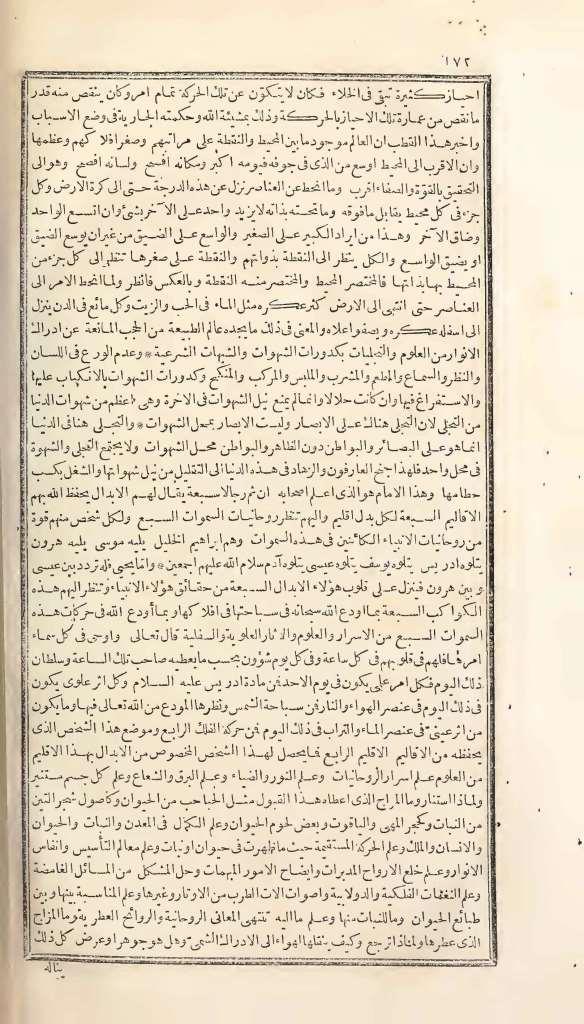 ١٧٢
احياز كثيرة تبقى فى الخلاء فكان لا يتكوّن عن تلك الحركة تمام امر وكان ينقص منه قدر
ما نقص من عمارة تلك الاحياز بالحركة وذلك بمشيئة الله وحكمته الجارية فى وضع الاسباب
واخبر هذا القطب ان العالم موجود ما بين المحيط والنقطة على مراتبهم وصغر افلاكهم وعظمها
وان الاقرب الى المحيط اوسع من الذى فى جوفه فيومه اكبر ومكانه افسح ولسانه افصح وهو الى
التحقيق بالقوّة والصفاء اقرب وما انحط عن العناصر نزل عن هذه الدرجة حتى الى كرة الارض وكل
جزء فى كل محيط يقابل ما فوقه وما تحته بذاته لا يزيد واحد على الآخر بشئ وان اتسع الواحد
وضاق الآخر وهذا من ايراد الكبير على الصغير والواسع على الضيق من غير ان يوسع الضيق
او يضيق الواسع والكل ينظر الى النقطة بذواتهم والنقطة على صغرها تنظر الى كل جزء من
المحيط بها بذاتها فالمختصر المحيط والمختصر منه النقطة وبالعكس فانظر ولما انحط الامر الى
العناصر حتى انتهى الى الارض كثر عكره مثل الماء فى الحب والزيت وكل مائع فى الدن ينزل
الى اسفله عكره ويصفو اعلاه والمعنى فى ذلك ما يجده عالم الطبيعة من الحجب المانعة عن ادراك
الانوار من العلوم والتجليات بكدورات الشهوات والشبهات الشرعية * وعدم الورع فى اللسان
والنظر والسماع والمطعم والمشرب والملبس والمركب والمنكح وكدورات الشهوات بالانكباب عليها
والاستفراغ فيها وان كانت حلالا وانما لم يمنع نيل الشهوات فى الآخرة وهى اعظم من شهوات الدنيا
من التجلى لان التجلى هناك على الابصار وليست الابصار بمحل الشهوات * والتجلى هنا فى الدنيا
انما هو على البصائر والبواطن دون الظاهر والبواطن محل الشهوات ولا يجتمع التجلى والشهوة
فى محل واحد فلهذا جنح العارفون والزهاد فى هذه الدنيا الى التقليل من نيل شهواتها والشغل بكسب
حطامها وهذا الامام هو الذى اعلم اصحابه ان ثم رجالا سبعة يقال لهم الابدال يحفظ الله بهم
الاقاليم السبعة لكل بدل اقليم واليهم تنظر روحانيات السموات السبع ولكل شخص منهم قوة
من روحانيات الانبياء الكائنين فى هذه السموات وهم ابراهيم الخليل يليه موسى يليه هرون
يتلوه ادريس يتلوه يوسف يتلوه عيسى يتلوه آدم سلام الله عليهم اجمعين * وامّا يحيى فله تردد بين عيسى
وبين هرون فينزل على قلوب هؤلاء الابدال السبعة من حقائق هؤلاء الانبياء وتنظر اليهم هذه
الكواكب السبعة بما اودع الله سبحانه فى سباحتها فى افلاكها وبما أودع الله فى حركات هذه
السموات السبع من الاسرار والعلوم والآثار العلوية والسفلية قال تعالى واوحى فى كل سماء
امرها فلهم فى قلوبهم فى كل ساعة وفى كل يوم شؤون بحسب ما يعطيه صاحب تلك الساعة وسلطان
ذلك اليوم فكل امر علمى يكون فى يوم الاحد فمن مادة ادريس عليه السلام وكل اثر علوى يكون
فى ذلك اليوم فى عنصر الهواء والنار فمن سباحة الشمس ونظرها المودع من الله تعالى فيها وما يكون
من اثر فى عنصر الماء والتراب فى ذلك اليوم فمن حركة الفلك الرابع وموضع هذا الشخص الذى
يحفظه من الاقاليم الاقليم الرابع فما يحصل لهذا الشخص المخصوص من الابدال بهذا الاقليم
من العلوم علم اسرار الروحانيات وعلم النور والضياء وعلم البرق والشعاع وعلم كل جسم مستنير
ولماذا استنار وما المزاج الذى اعطاه هذا القبول مثل الحباحب من الحيوان وكاصول شجر التين
من النبات وكحجر المهى والياقوت وبعض لحوم الحيوان وعلم الكمال فى المعدن والنبات والحيوان
والانسان والملك وعلم الحركة المستقيمة حيث ما ظهرت فى حيوان او نبات وعلم معالم التأسيس وانفاس
الانوار وعلم خلع الارواح المدبرات وايضاح الامور المبهمات وحل المشكل من المسائل الغامضة
وعلم النغمات الفلكية والدولابية واصوات آلات الطرب من الاوتار وغيرها وعلم المناسبة بينها وبين
طبائع الحيوان وما للنبات منها وعلم ما اليه تنتهى المعانى الروحانية والروائح العطرية وما المزاج
الذى عطرها ولماذا ترجع وكيف ينقلها الهواء الى الادراك الشمى وهل هو جوهر او عرض كل ذلك
يناله